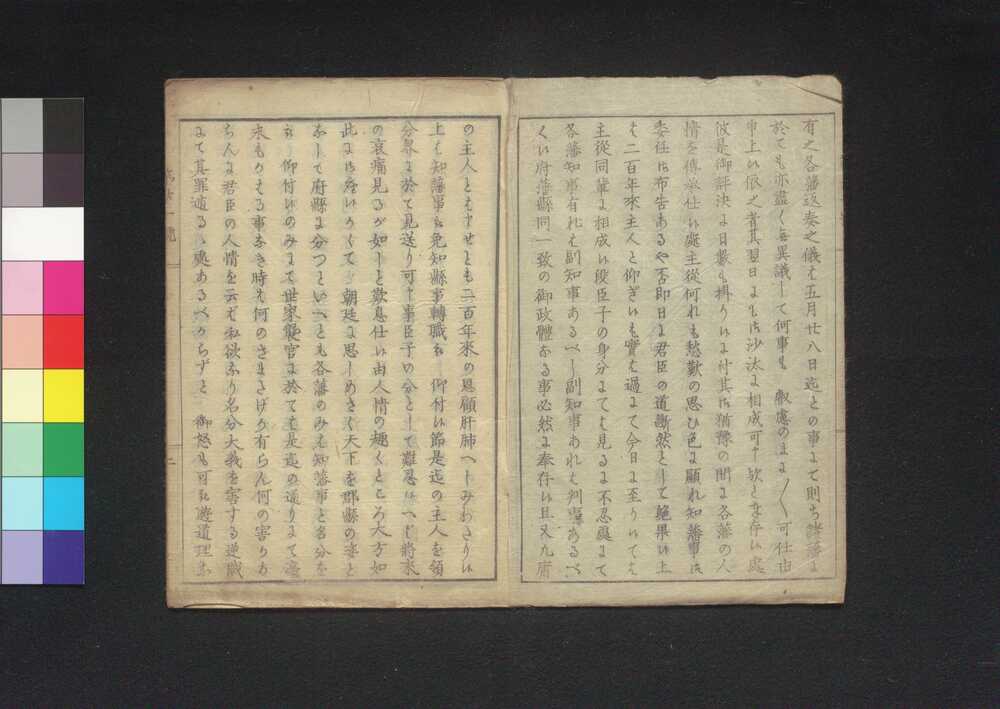 有之各藩返奏之儀は五月廿八日迄との事にて則ち諸藩に
於ても亦盡く無異議して何事も 叡慮のまに〱可仕由
申上候依之者其翌日にも御沙汰に相成可申欤と奉存候處
彼是御評決に日數も掛り候に付其御猶豫の間に各藩の人
情を傳承仕候處主從何れも愁歎の思ひ色に顯れ知藩事御
委任御布告あるや否即日に君臣の道斷然として絶果候上
は二百年來主人と仰ぎ候も實は過にて今日に至り候ては
主從同輩に相成候段臣子の身分にては見るに不忍處にて
各藩知事有れは副知事あるべし副知事あれは判事あるべ
く候府藩縣同一致の御政體なる事必然に奉存候且又九鹿
の主人とも申せとも二百年來の恩顧肝肺へしみわたり候
上は知藩事を免知縣事轉職被 仰付候節是迄の主人を領
分界に於て見送り可申事臣子の分として難忍候へ共將來
の哀痛見るが如しと歎息仕候由人情の趣くところ大方如
此に御座候かくて 朝廷に思しめさく天下を郡縣の姿と
なして府縣に分つといへとも各藩のみを知藩事と名分を
被 仰付候のみにて世家襲官に於ては是迄の通りにて
末もかはる事なき時は何のさまたげか有らん何の害りあ
らんに君臣の人情を云ず私欲より名分大義を害する逆賊
にて其罪遁るゝ處あるべからずと 御怒も可被遊道理